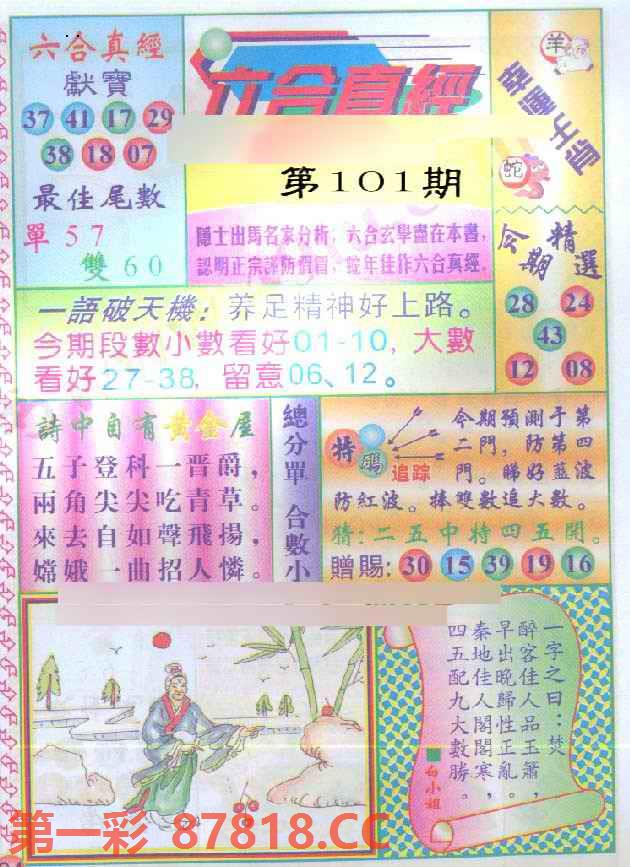 六合真經
獻寶
37 41 17 29
38 18 07
最佳尾數
單57
雙60
六合真經
第101期
隱士出馬名家分析，六合玄學盡在本書，
認明正宗謹防假冒，蛇年佳作六合真經。
羊
幸運生肖
蛇
今期精選
28 24
43
12 08
一語破天機：养足精神好上路。
今期段數小數看好01-10，大數
看好27-38，留意06、12。
詩中自有黃金屋
五子登科一晋爵，
兩角尖尖吃青草。
來去自如聲飛揚，
嫦娥一曲招人憐。
總分單 合數小
特碼
追踪
今期預測于第
二門，防第四
門。睇好藍波
防紅波。捧雙數追大數。
猜：二五中特四五開。
贈賜：30 15 39 19 16
一字之曰：焚
醉客佳人品玉簫，
早出晚歸性正亂。
秦地佳人閣閣寒，
四五配九大數勝。
白小姐
第一彩 87818.CC